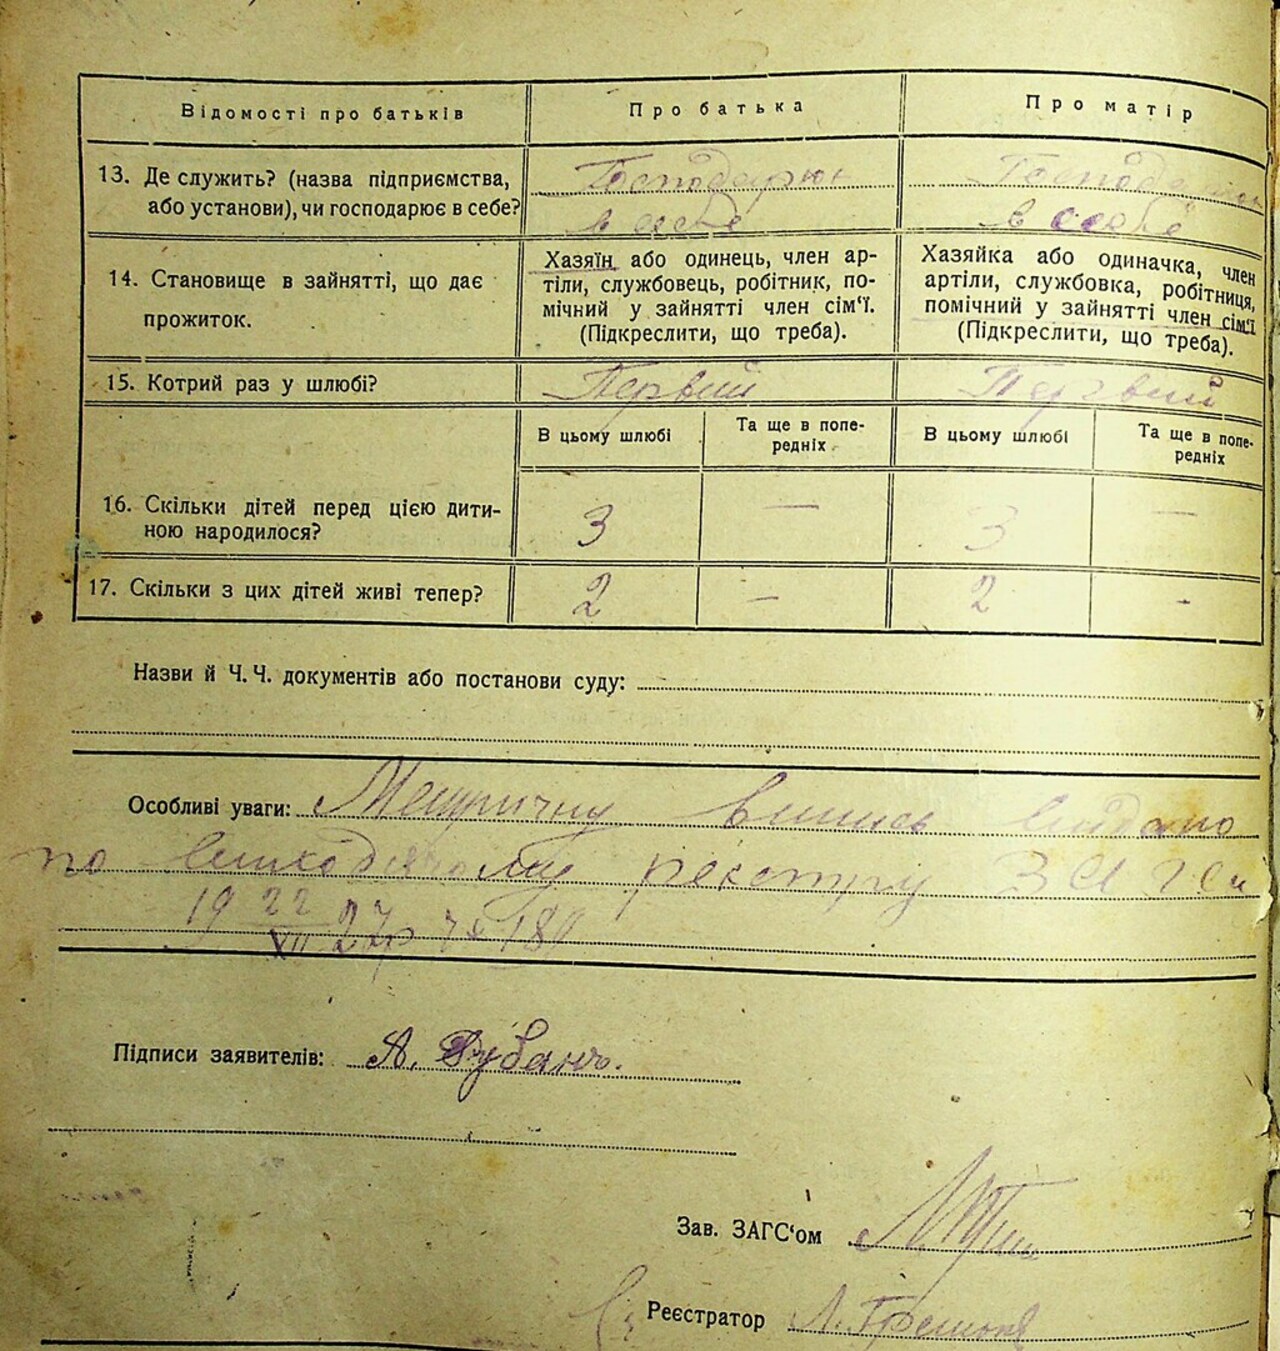 Відомості про батьків
Про батька
Про матір
13. Де служить? (назва підприємства,
або установи), чи господарює в себе?
Господарює
в себе
Господарює
в себе
14. Становище в зайнятті, що дає
прожиток.
Хазяїн або одинець, член ар-
тіли, службовець, робітник, по-
мічний у зайнятті член сім'ї.
(Підкреслити, що треба).
Хазяйка або одиначка, член
артіли, службовка, робітниця,
помічний у зайнятті член сім'ї
(Підкреслити, що треба).
15. Котрий раз у шлюбі?
Первий
Первий
В цьому шлюбі
Та ще в попе-
редніх
В цьому шлюбі
Та ще в попе-
редніх
16. Скільки дітей перед цією дити-
ною народилося?
3
—
3
—
17. Скільки з цих дітей живі тепер?
2
—
2
-
Назви й Ч. Ч. документів або постанови суду:
Особливі уваги: Метричну випись видано
по реєстру
19 22/XII 27р
Підписи заявителів: А. Рубань.
Зав. ЗАГС'ом
Реєстратор